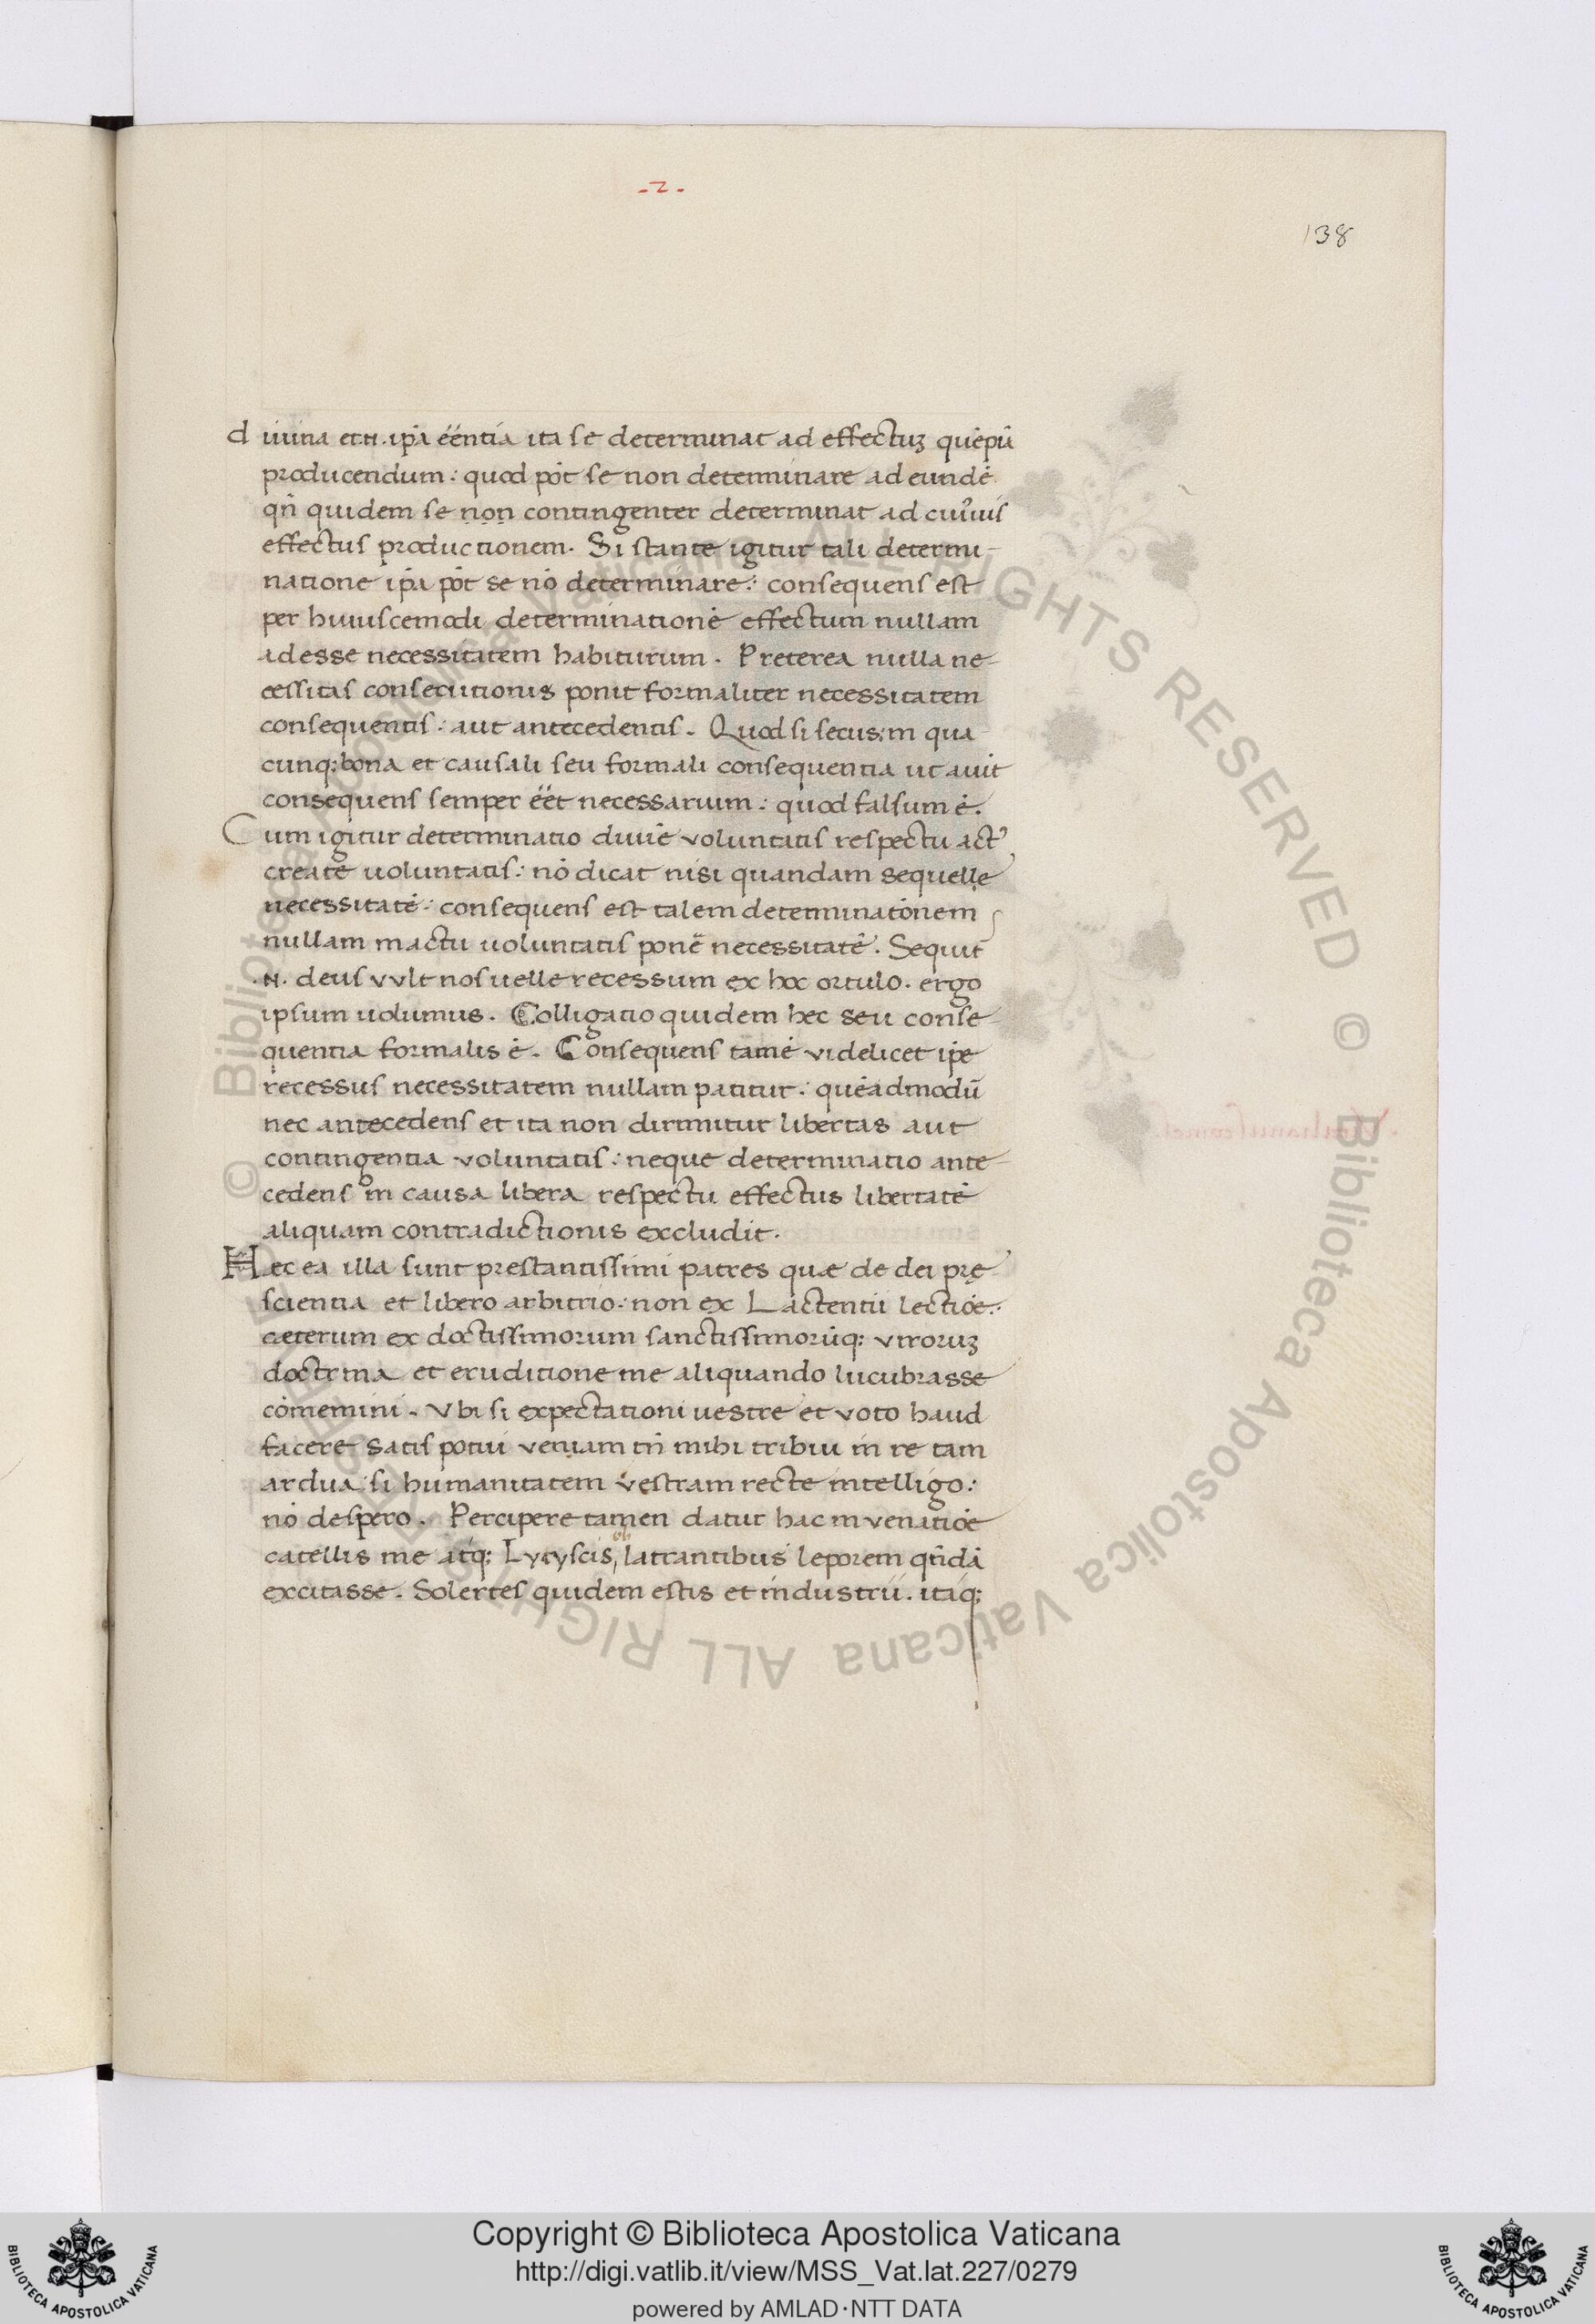 -2-
138
diuina et .n. ip̄a ëëntia ita se determinat ad effectuʒ quēpiā
producendum: quod pōt se non determinare ad eundē
qn̄ quidem se non contingenter determinat ad cuiᵘuis
effectus productionem. Si stante igitur tali determi-
natione ip̄a pōt se nō determinare: consequens est
per huiuscemodi determinationē effectum nullam
adesse necessitatem habiturum. Preterea nulla ne-
cessitas consecutionis ponit formaliter necessitatem
consequentis: aut antecedentis. Quod si secus: in qua-
cunq; bona et causali seu formali consequentia ut auit
consequens semper ëët necessarium: quod falsum ē.
Cum igitur determinatio diuiē voluntatis respectu actꝰ
create uoluntatis: nō dicat nisi quandam sequelle
necessitatē: consequens est talem determinatōnem
nullam in actu uoluntatis ponē necessitatē. Sequit᷑
.N. deus vvlt nos uelle recessum ex hoc ortulo. ergo
ipsum uolumus. Colligatio quidem hec seu conse-
quentia formalis ē. Consequens tamē videlicet ip̄e
recessus necessitatem nullam patitur: quēadmodū
nec antecedens et ita non dirimitur libertas aut
contingentia voluntatis: neque determinatio ante-
cedens in causa libera respectu effectus libertatē
aliquam contradictionis excludit.
Hec ea illa sunt prestantissimi patres quæ de dei pre-
scientia et libero arbitrio: non ex Lactentii lectiōe:
cæterum ex doctissimorum sanctissimorūq; viroruʒ
doctrina et eruditione me aliquando lucubrasse
cōmemini. Vbi si expectationi uestre et voto haud
facere satis potui veniam tn̄ mihi tribui in re tam
ardua si humanitatem vestram recte intelligo:
nō despero. Percipere tamen datur hac in venatiōe
catellis me atq; Lycyscis latrantibus leporem qn̄dā
excitasse. Solertes quidem estis et industrii. itaq;
Copyright © Biblioteca Apostolica Vaticana
http://digi.vatlib.it/view/MSS_Vat.lat.227/0279
powered by AMLAD·NTT DATA
BIBLIOTECA APOSTOLICA VATICANA
BIBLIOTECA APOSTOLICA VATICANA
© Biblioteca Apostolica Vaticana ALL RIGHTS RESERVED
© Biblioteca Apostolica Vaticana ALL RIGHTS RESERVED